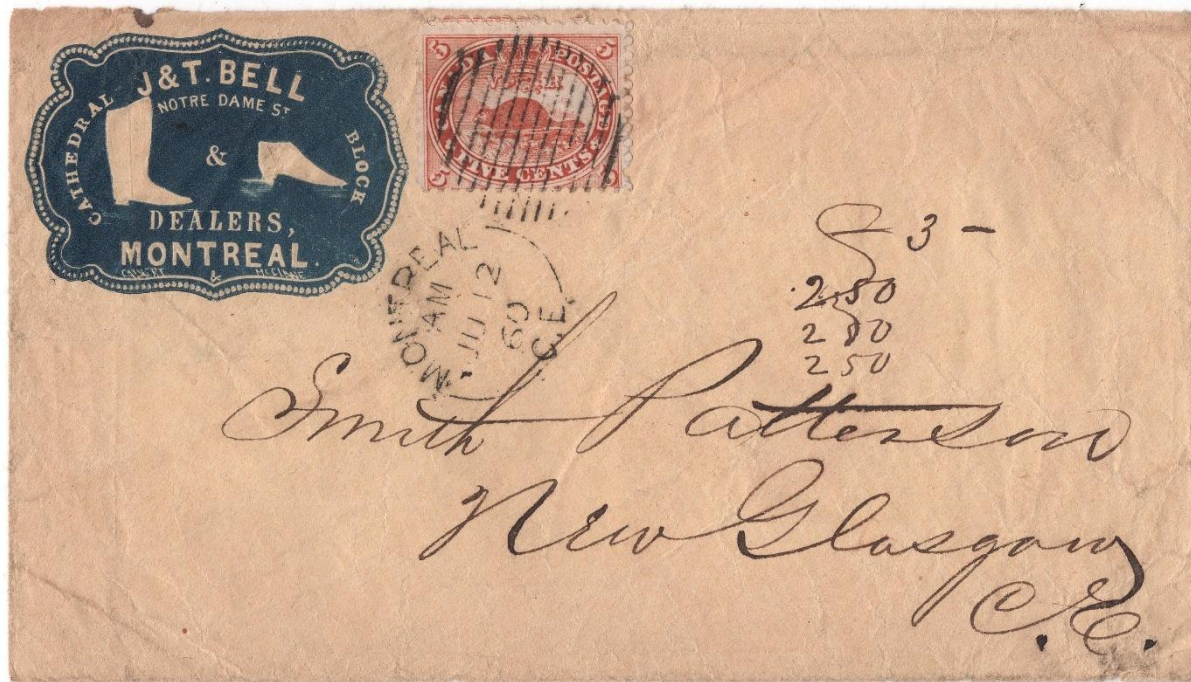 J & T. BELL
NOTRE DAME ST
CATHEDRAL BLOCK
&
DEALERS,
MONTREAL.
&
5 5
CANADA POSTAGE
FIVE CENTS
5 5
MONTREAL
AM
JU 12
60
C.E.
3 -
2.50
2 50
250
Smith Patterson
New Glasgow
C.E.